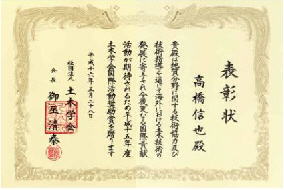 表彰状
高橋信也殿
貴殿は地質分野に関する技術協力及び
技術指導を通じて海外における土木技術の
発展に寄与され今後更なる国際貢献
活動が期待されるため平成十五年度
土木学会国際活動奨励賞を贈ります
平成十六年五月二十八日
社団法人
土木学会
会長
御巫清泰